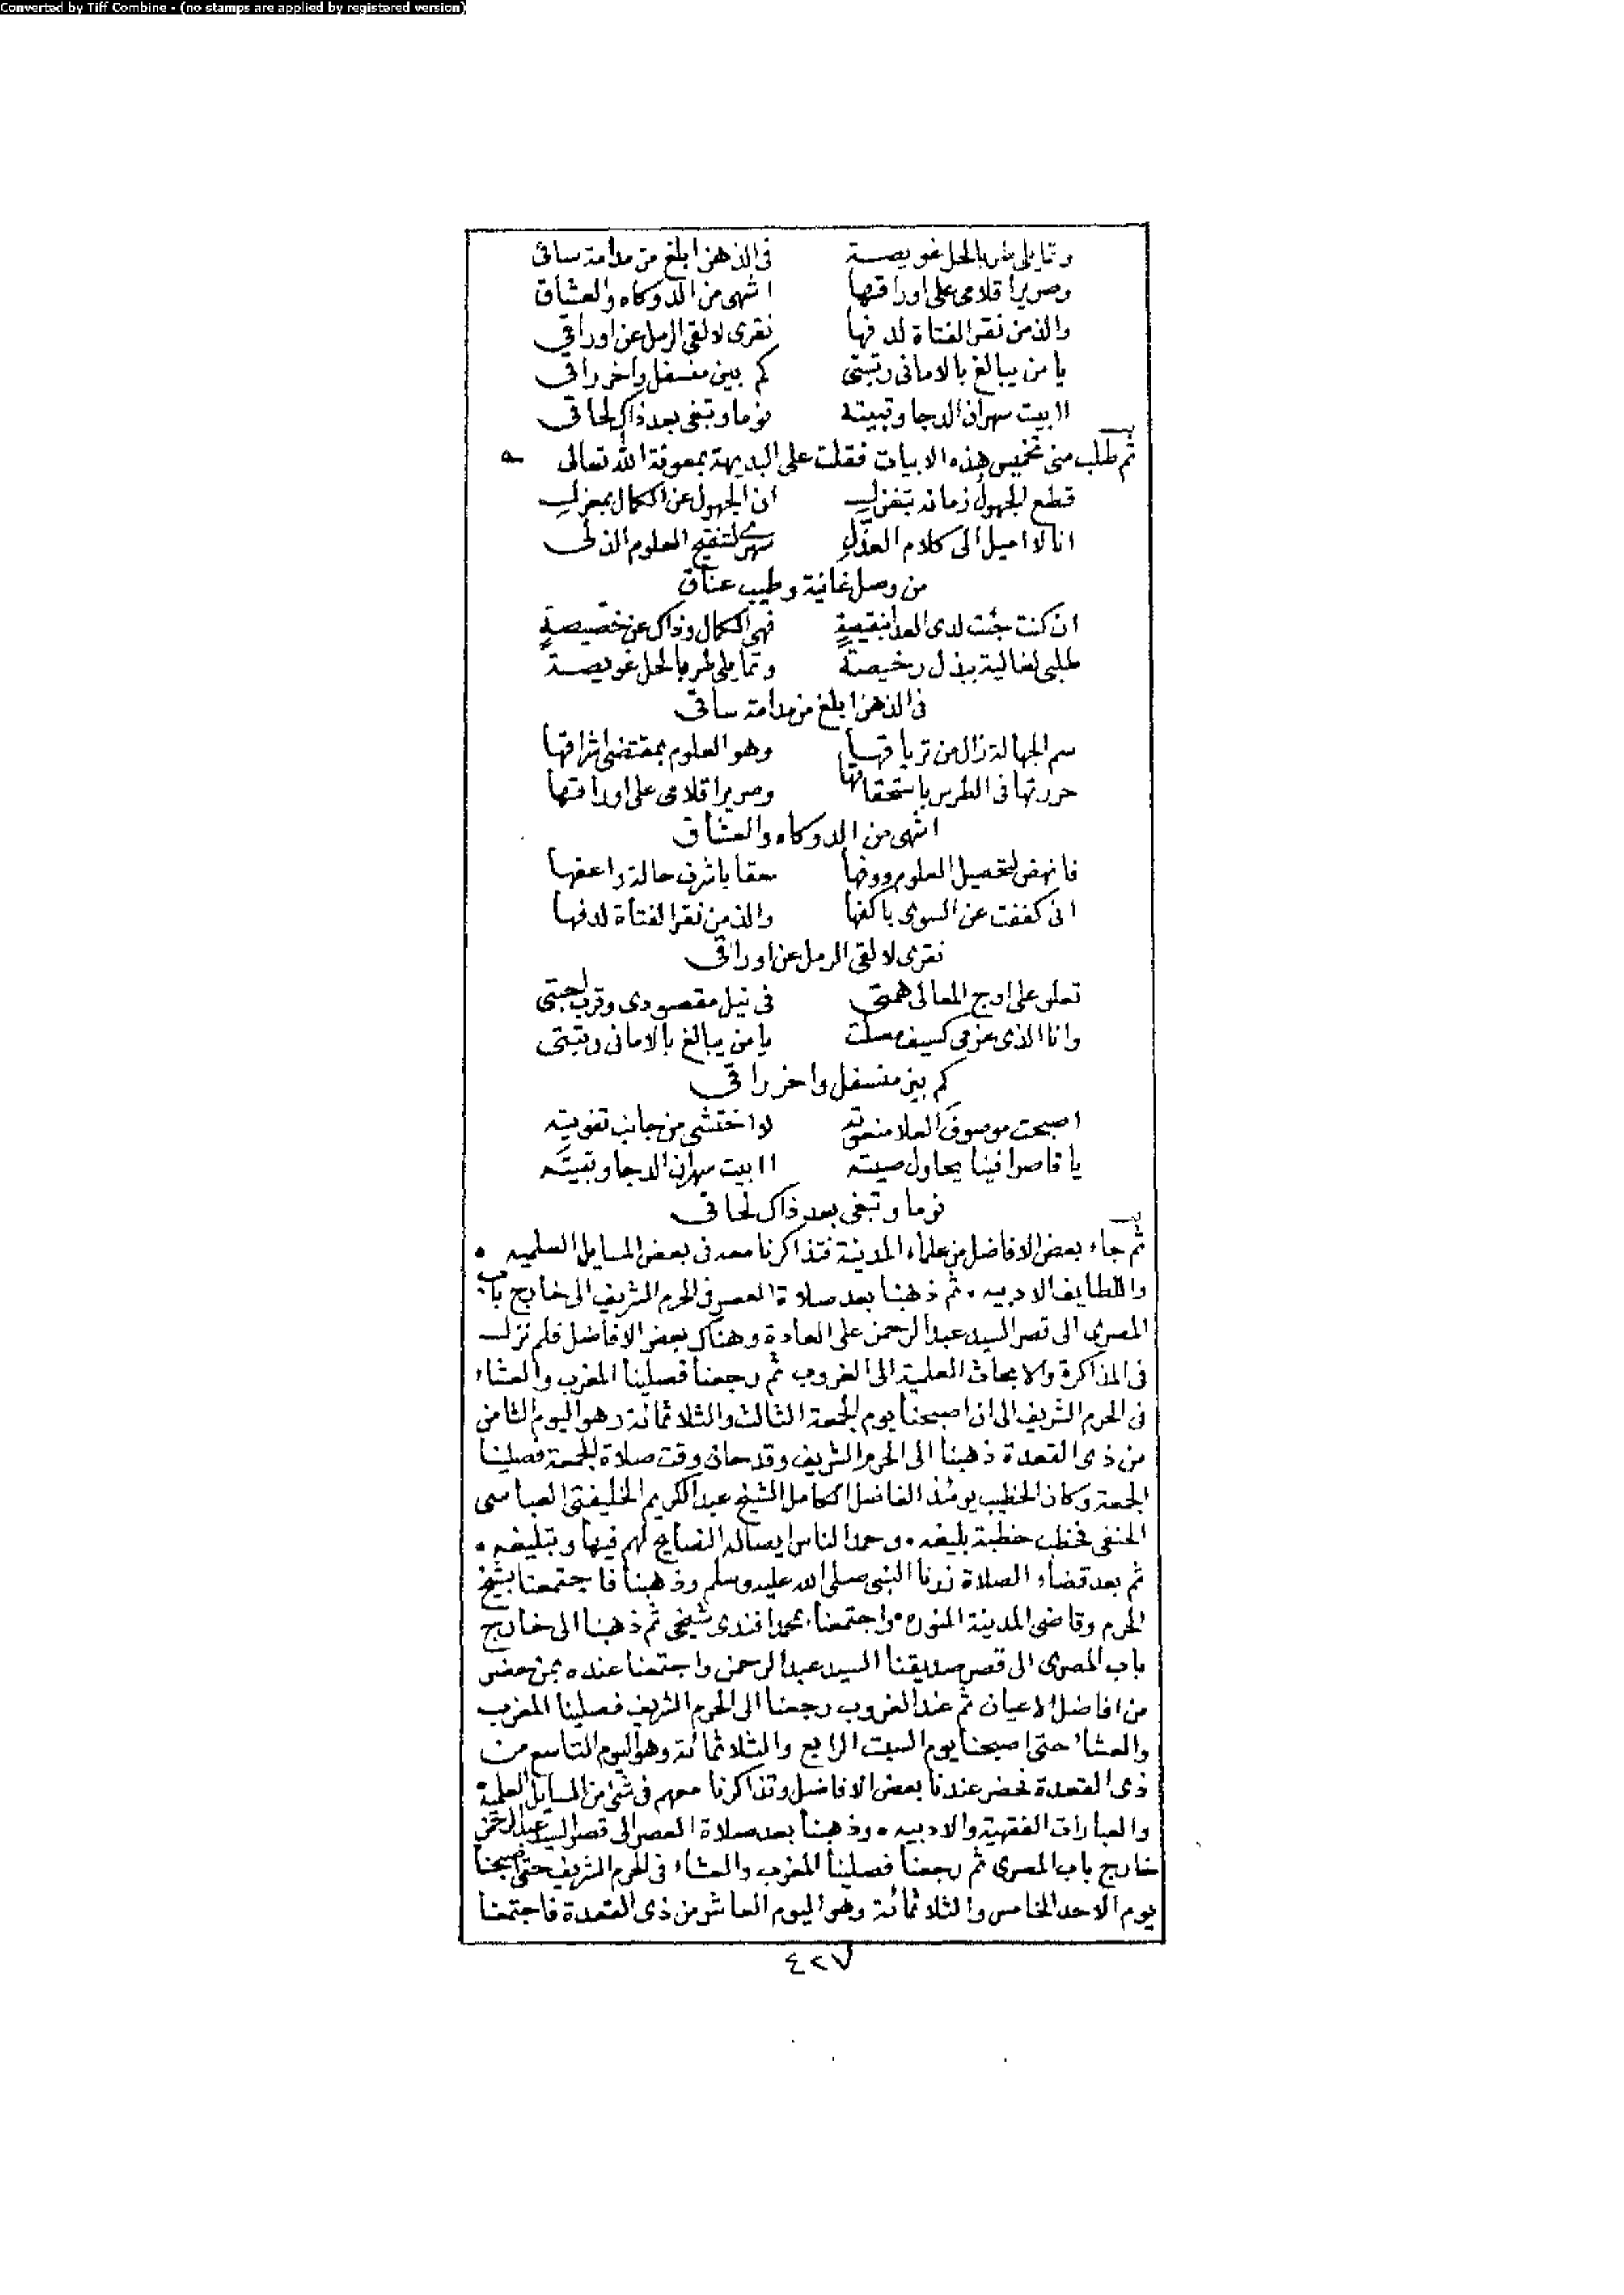 Converted by Tiff Combine - (no stamps are applied by registered version)
وتمايلى طربا لحل عويصة في الذهن ابلغ من مدامة ساقى
وصرير اقلامى على اوراقها اشهى من الدوكاه والعشاق
والذ من نقر الفتاة لدفها نقرى لالقى الرمل عن اوراقى
يا من يبالغ بالامانى رتبتى كم بين منسفل واخر راقى
اابيت سهران الدجا وتبيته نوما وتبغى بعد ذاك لحاقى
ثم طلب منى تخميس هذه الابيات فقلت على البديهة بمعونة الله تعالى
قطع الجهول زمانه بتغزل ان الجهول عن الكمال بمعزل
انا لا اميل الى كلام العذل سهرى لتنقيح العلوم الذ لى
من وصل غانية وطيب عناق
ان كنت جئت لدى العدا بنقيصة فهى الكمال وذاك عن خصيصة
طلبى لغالية ببذل رخيصة وتمايلى طربا لحل عويصة
في الذهن ابلغ من مدامة ساقى
سم الجهالة زال من ترياقها وهو العلوم بمقتضى اشراقها
حررتها في الطرس باستحقاقها وصرير اقلامى على اوراقها
اشهى من الدوكاه والعشاق
فانهض لتحصيل العلوم ووفها حقا باشرف حالة واعفها
انى كففت عن السوى باكفها والذ من نقر الفتاة لدفها
نقرى لالقى الرمل عن اوراقى
تعلو على اوج المعالى همتى في نيل مقصودى وقرب احبتى
وانا الذى عزمى كسيف مصلت يا من يبالغ بالامانى رتبتى
كم بين منسفل واخر راقى
اصبحت موصوف العلا منعوته لا اختشى من جانب تفويته
يا قاصرا فينا يحاول صيته اابيت سهران الدجا وتبيته
نوما وتبغى بعد ذاك لحاقى
ثم جاء بعض الافاضل من علماء المدينة فتذاكرنا معه في بعض المسايل العلميه
واللطايف الادبيه. ثم ذهبنا بعد صلاة العصر في الحرم الشريف الى خارج باب
المصرى الى قصر السيد عبد الرحمن على العادة وهناك بعض الافاضل فلم نزل
في المذاكرة والابحاث العلمية الى الغروب ثم رجعنا فصلينا المغرب والعشاء
في الحرم الشريف الى ان اصبحنا يوم الجمعة الثالث والثلاثمائة وهو اليوم الثامن
من ذى القعدة ذهبنا الى الحرم الشريف وقد حان وقت صلاة الجمعة فصلينا
الجمعة وكان الخطيب يومئذ الفاضل الكامل الشيخ عبد الكريم الخليفتى العباسى
الحنفى فخطب خطبة بليغه. وحمد الناس ايصاله النصايح لهم فيها وتبليغه.
ثم بعد قضاء الصلاة زرنا النبى صلى الله عليه وسلم وذهبنا فاجتمعنا بشيخ
الحرم وقاضى المدينة المنوره واجتمعنا بمحمد افندى شيخى ثم ذهبنا الى خارج
باب المصرى الى قصر صديقنا السيد عبد الرحمن واجتمعنا عنده بمن حضر
من افاضل الاعيان ثم عند الغروب رجعنا الى الحرم الشريف فصلينا المغرب
والعشاء حتى اصبحنا يوم السبت الرابع والثلاثمائة وهو اليوم التاسع من
ذى القعدة فحضر عندنا بعض الافاضل وتذاكرنا معهم في شئ من المسايل العلمية
والعبارات الفقهية والادبيه. وذهبنا بعد صلاة العصر الى قصر السيد عبد الرحمن
خارج باب المصرى ثم رجعنا فصلينا المغرب والعشاء في الحرم الشريف حتى اصبحنا
يوم الاحد الخامس والثلاثمائة وهو اليوم العاشر من ذى القعدة فاجتمعنا
٤٢٧